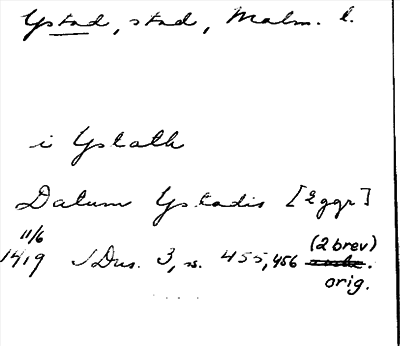 Ystad, stad, Malm. l.
i Ystath
Datum Ystadis [Eggr]
11/6 (2 brev)
1419 SDns. 3, s. 455, 456
orig.